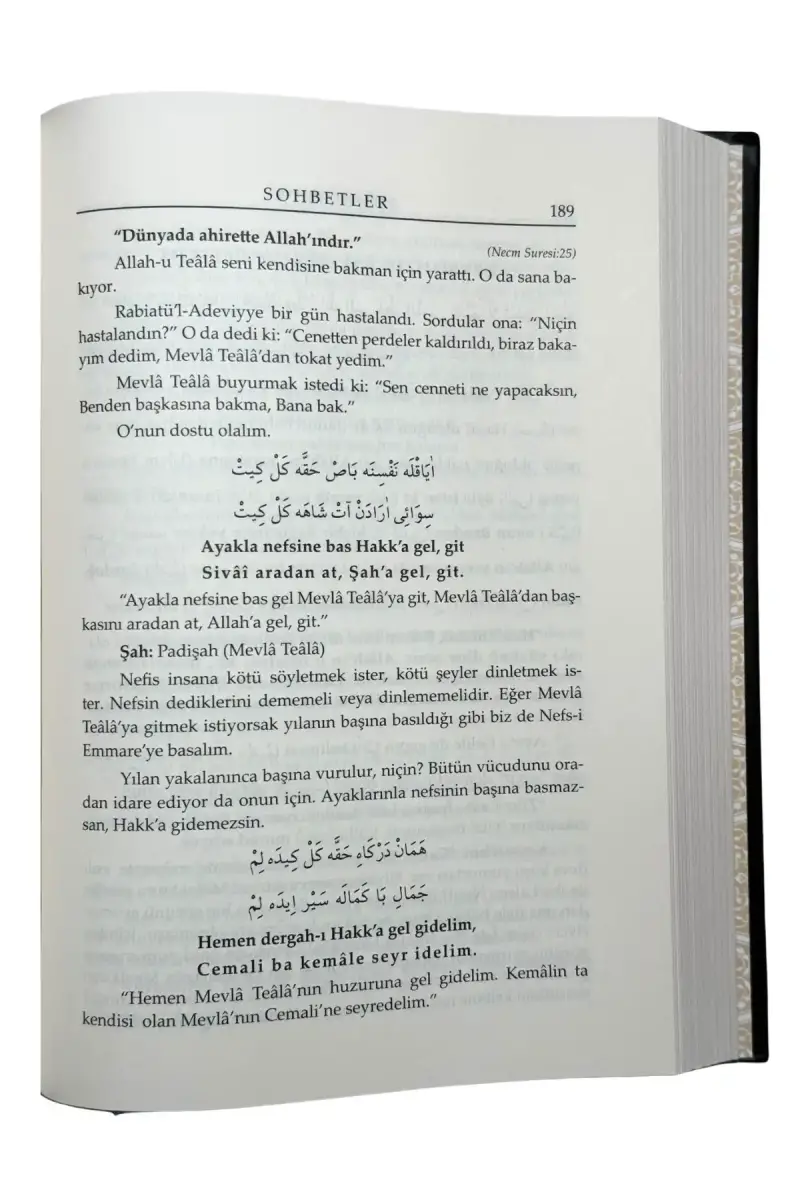 SOHBETLER
189
“Dünyada ahirette Allah’ındır.”
(Necm Suresi:25)
Allah-u Teâlâ seni kendisine bakman için yarattı. O da sana ba-
kıyor.
Rabiatü’l-Adeviyye bir gün hastalandı. Sordular ona: “Niçin
hastalandın?” O da dedi ki: “Cenetten perdeler kaldırıldı, biraz baka-
yım dedim, Mevlâ Teâlâ’dan tokat yedim.”
Mevlâ Teâlâ buyurmak istedi ki: “Sen cenneti ne yapacaksın,
Benden başkasına bakma, Bana bak.”
O’nun dostu olalım.
اَيَاقْلَه نَفْسِنَه بَاصْ حَقَّه كَلْ كِيتْ
سِوَائِى اَرَادَنْ آتْ شَاهَه كَلْ كِيتْ
Ayakla nefsine bas Hakk’a gel, git
Sivâî aradan at, Şah’a gel, git.
“Ayakla nefsine bas gel Mevlâ Teâlâ’ya git, Mevlâ Teâlâ’dan baş-
kasını aradan at, Allah’a gel, git.”
Şah: Padişah (Mevlâ Teâlâ)
Nefis insana kötü söyletmek ister, kötü şeyler dinletmek is-
ter. Nefsin dediklerini dememeli veya dinlememelidir. Eğer Mevlâ
Teâlâ’ya gitmek istiyorsak yılanın başına basıldığı gibi biz de Nefs-i
Emmare’ye basalım.
Yılan yakalanınca başına vurulur, niçin? Bütün vücudunu ora-
dan idare ediyor da onun için. Ayaklarınla nefsinin başına basmaz-
san, Hakk’a gidemezsin.
هَمَانْ دَرْكَاهِ حَقَّه كَلْ كِيدَه لِمْ
جَمَالِ بَا كَمَالَه سَيْر اِيدَه لِمْ
Hemen dergah-ı Hakk’a gel gidelim,
Cemali ba kemâle seyr idelim.
“Hemen Mevlâ Teâlâ’nın huzuruna gel gidelim. Kemâlin ta
kendisi olan Mevlâ’nın Cemali’ne seyredelim.”